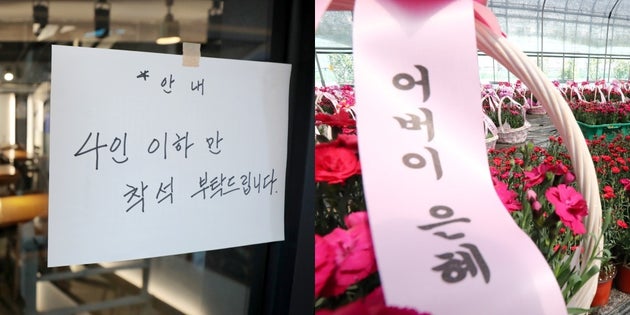 * 안내
4인 이하만
착석 부탁드립니다.
어버이 은혜